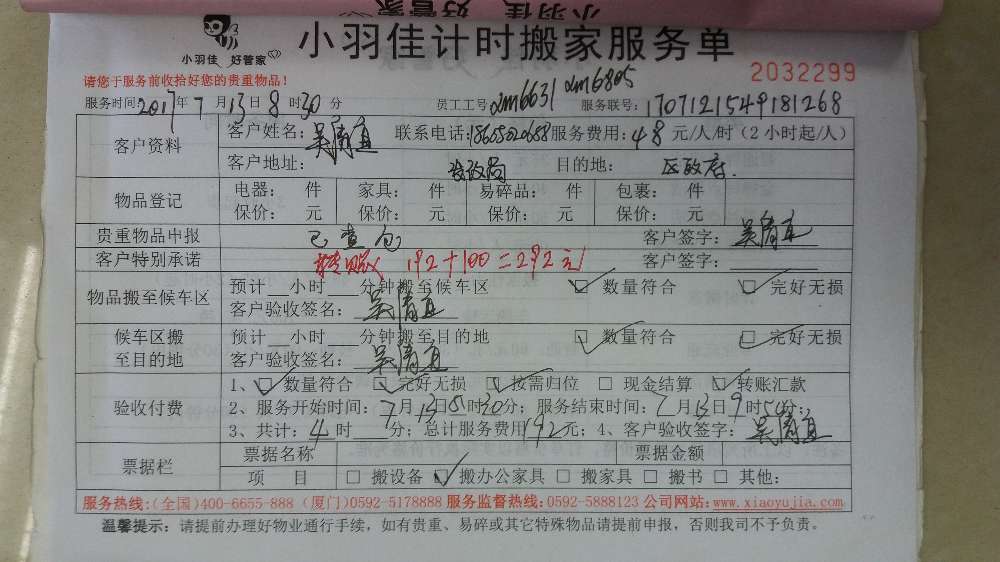 小羽佳 好管家
小羽佳 好管家
小羽佳计时搬家服务单
请您于服务前收拾好您的贵重物品!
2032299
服务时间2017年7月13日8时30分 员工工号 服务联号: 1707121549181268
客户资料
客户姓名: 联系电话:18605020688服务费用:48元/人/时(2小时起/人)
客户地址: 目的地: 区政府.
物品登记
电器: 件 家具: 件 易碎品: 件 包裹: 件
保价: 元 保价: 元 保价: 元 保价: 元
贵重物品申报 已查包 客户签字:
客户特别承诺 转账 192+100=292元 客户签字:
物品搬至候车区
预计__小时___分钟搬至候车区 ☑数量符合 ☑完好无损
客户验收签名:
候车区搬至目的地
预计__小时___分钟搬至目的地 ☑数量符合 ☑完好无损
客户验收签名:
验收付费
1、☑数量符合 ☑完好无损 ☑按需归位 □现金结算 ☑转账汇款
2、服务开始时间:7月13日8时30分; 服务结束时间:7月13日9时50分;
3、共计:4时___分; 总计服务费用192元; 4、客户验收签字:
票据栏
票据名称 票据金额
项 目 □搬设备 ☑搬办公家具 □搬家具 □搬书 □其他:
服务热线:(全国)400-6655-888 (厦门)0592-5178888 服务监督热线:0592-5888123 公司网站:www.xiaoyujia.com
温馨提示: 请提前办理好物业通行手续,如有贵重、易碎或其它特殊物品请提前申报,否则我司不予负责。